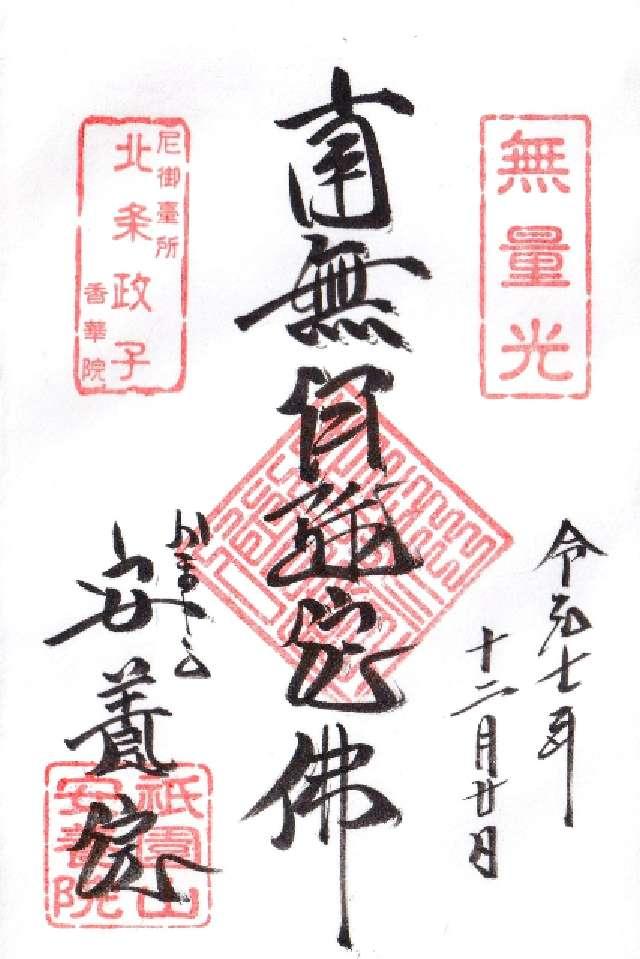 無量光
令和七年
十二月廿日
南無阿弥陀佛
尼御臺所
北条政子
香華院
かまくら
安養院
祇園山
安養院